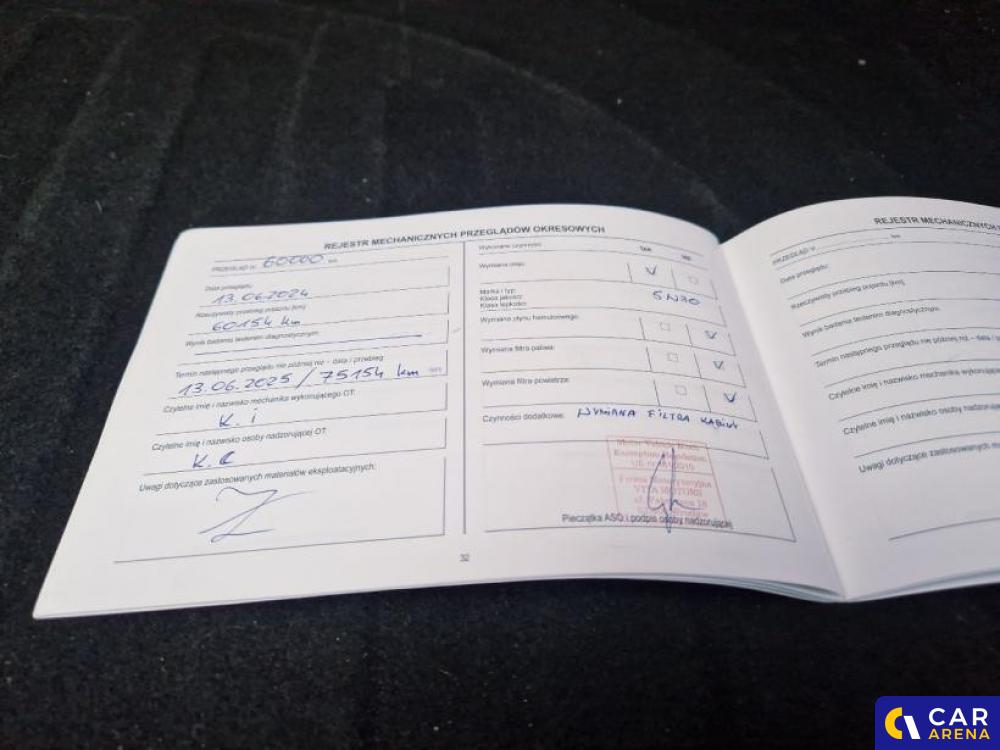 REJESTR MECHANICZNYCH PRZEGLĄDÓW OKRESOWYCH
PRZEGLĄD V. 60000 km
Data przeglądu:
13.06.2024
Rzeczywisty przebieg pojazdu [km]
60154 km
Wynik badania testerem diagnostycznym:
Termin następnego przeglądu nie później niż – data i przebieg
13.06.2025 / 75154 km
Czytelne imię i nazwisko mechanika wykonującego OT:
K. i
Czytelne imię i nazwisko osoby nadzorującej OT:
K.
Uwagi dotyczące zastosowanych materiałów eksploatacyjnych:
32
Wykonane czynności: TAK NIE
Wymiana oleju: V
Marka i typ:
Klasa jakości: 5W30
Klasa lepkości:
Wymiana płynu hamulcowego: V
Wymiana filtra paliwa: V
Wymiana filtra powietrza: V
Czynności dodatkowe: WYMIANA FILTRA KABINY
Firma Motoryzacyjna
Pieczątka ASO i podpis osoby nadzorującej
REJESTR MECHANICZNYCH
PRZEGLĄD V. km
Data przeglądu:
Rzeczywisty przebieg pojazdu [km]
Wynik badania testerem diagnostycznym:
Termin następnego przeglądu nie później niż – data i
Czytelne imię i nazwisko mechanika
Czytelne imię i nazwisko osoby
Uwagi dotyczące zastosowanych
CAR
ARENA